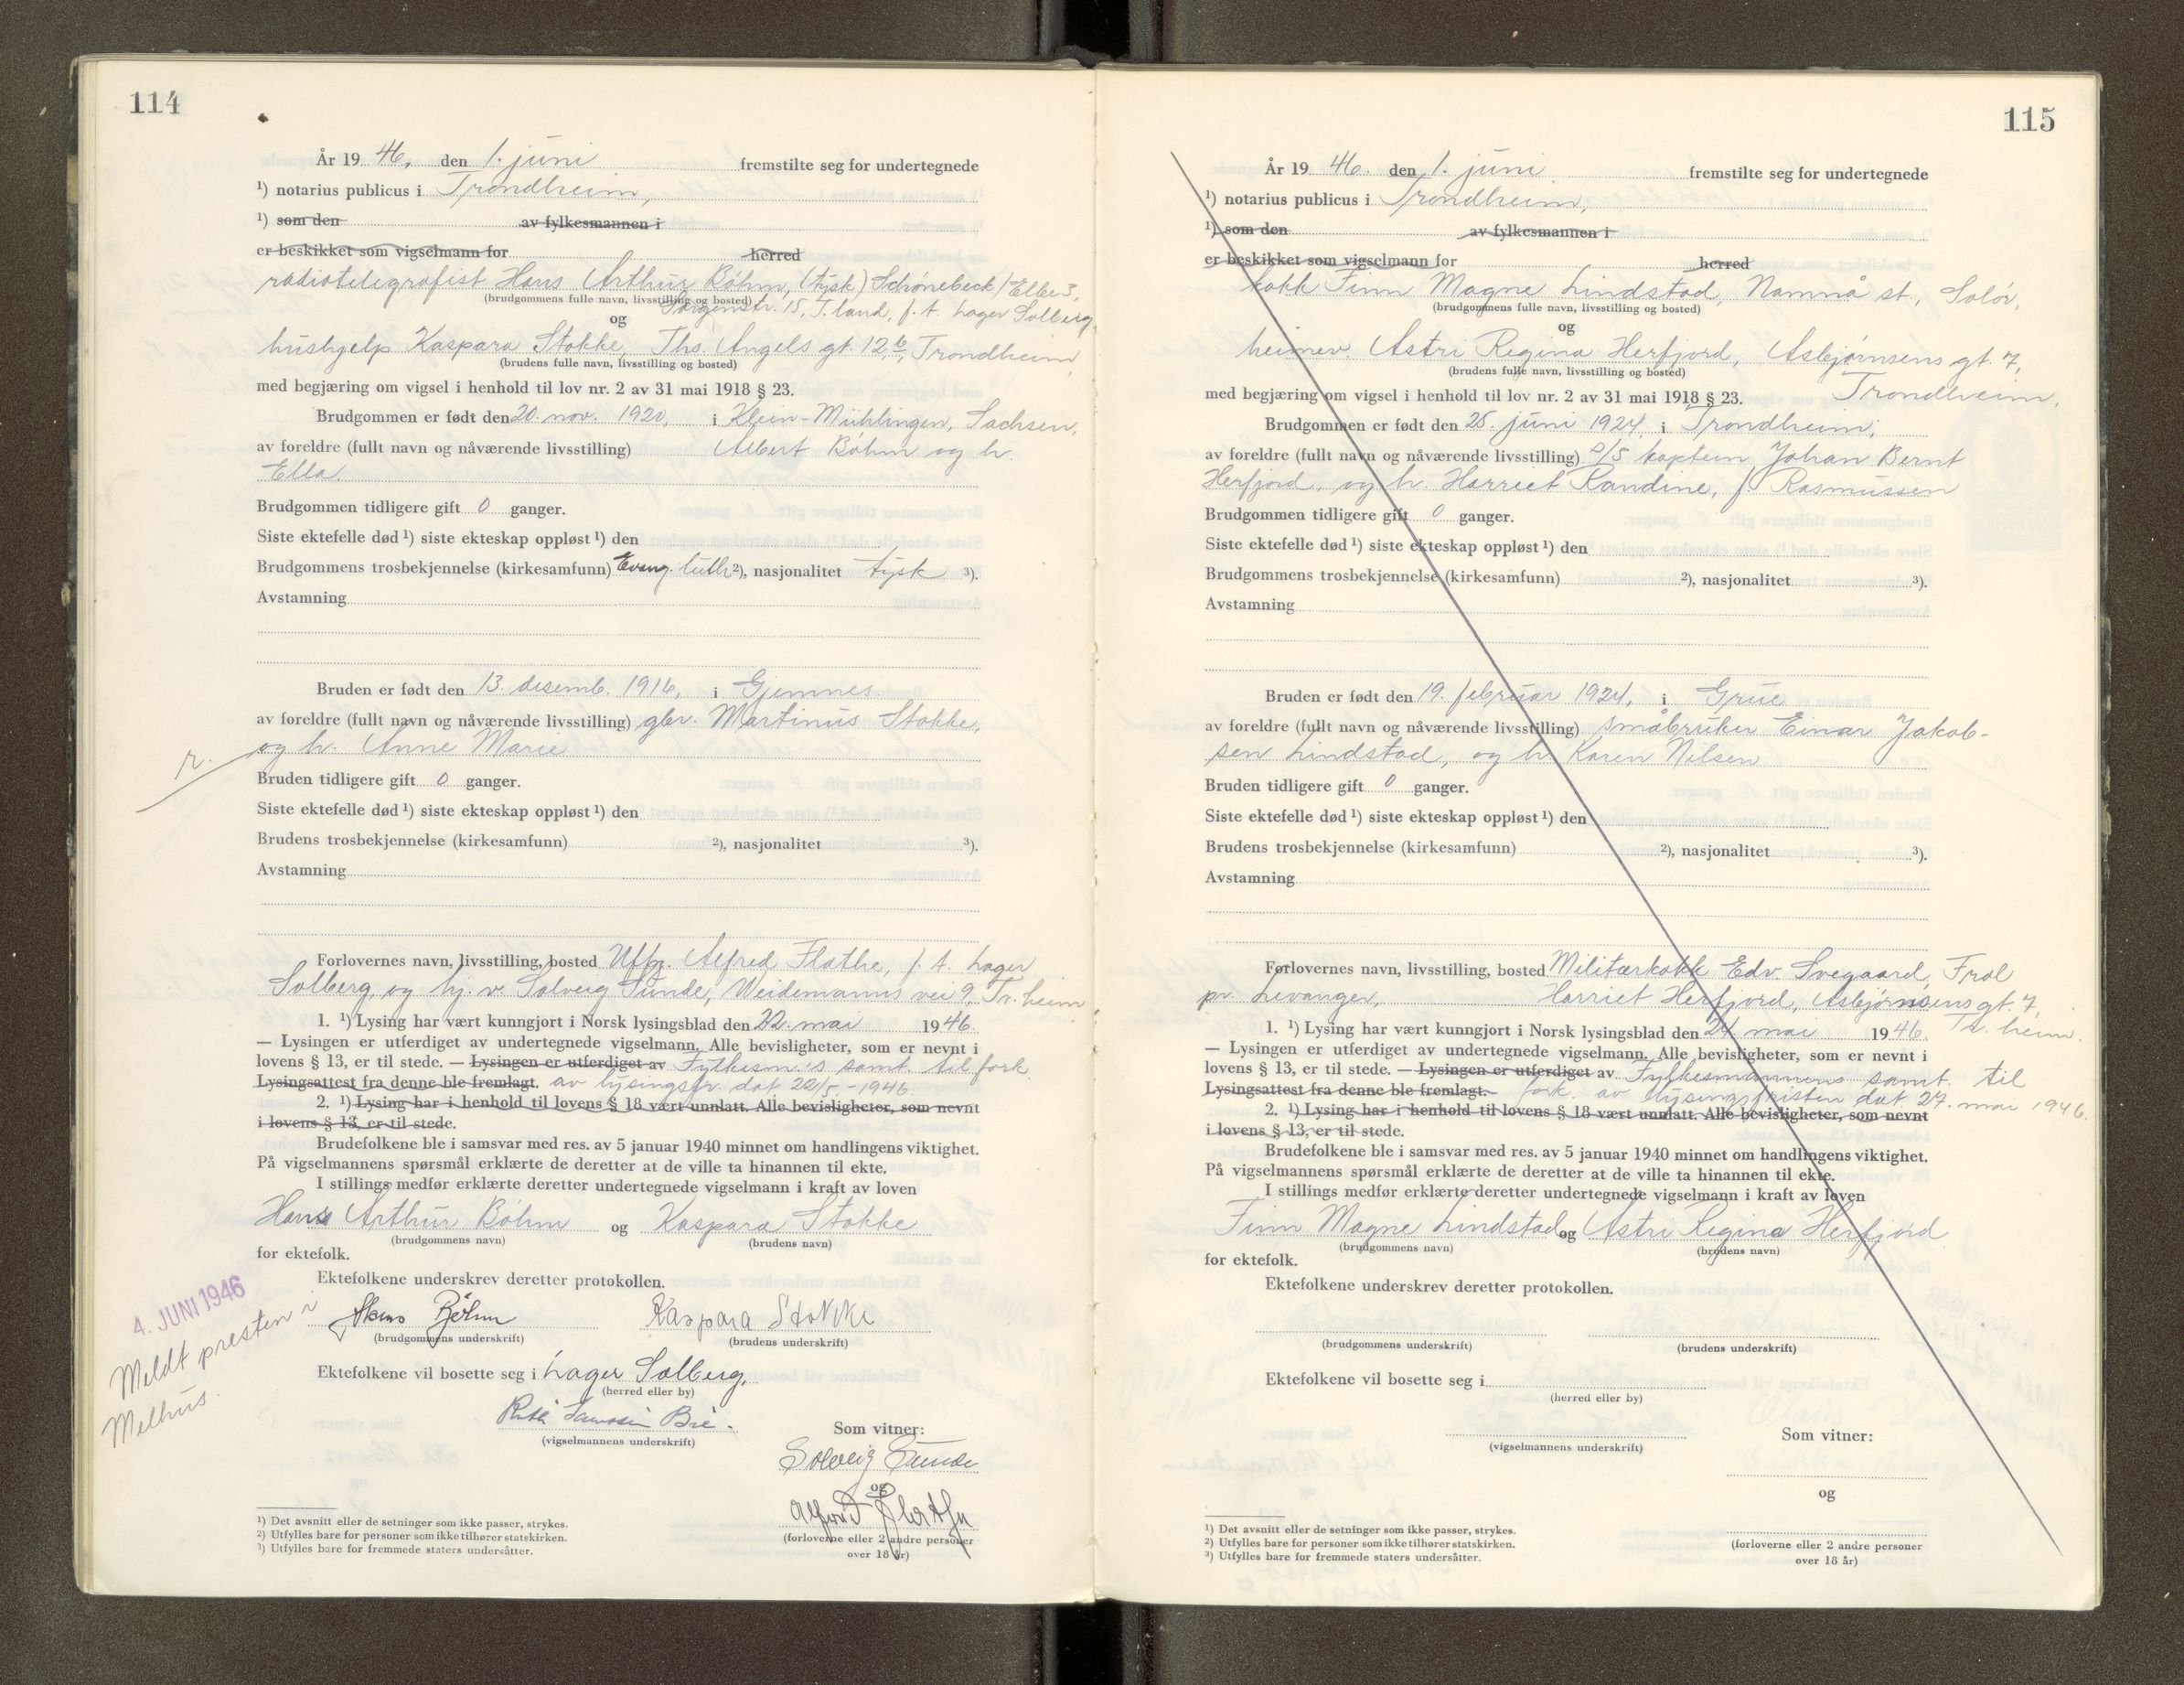 114
År 19 46, den 1. juni fremstilte seg for undertegnede
¹) notarius publicus i Trondheim,
¹) som den av fylkesmannen i
er beskikket som vigselmann for herred
radiotelegrafist Hans Arthur Bøhm, (tysk) Schönebeck/Elbe 3,
(brudgommens fulle navn, livsstilling og bosted)
Sorgenstr. 15, T.land, f.t. Lager Solberg,
og
hushjelp Kaspara Stokke, Ths. Angels gt. 12 b, Trondheim,
(brudens fulle navn, livsstilling og bosted)
med begjæring om vigsel i henhold til lov nr. 2 av 31 mai 1918 § 23.
Brudgommen er født den 20. nov. 1920, i Klein-Mühlingen, Sachsen,
av foreldre (fullt navn og nåværende livsstilling) Albert Bøhm og h.
Ella.
Brudgommen tidligere gift 0 ganger.
Siste ektefelle død ¹) siste ekteskap oppløst ¹) den
Brudgommens trosbekjennelse (kirkesamfunn) Evang. luth ²), nasjonalitet tysk ³).
Avstamning
Bruden er født den 13. desemb. 1916, i Gjemnes
av foreldre (fullt navn og nåværende livsstilling) gbr. Martinus Stokke,
og h. Anne Marie
r.
Bruden tidligere gift 0 ganger.
Siste ektefelle død ¹) siste ekteskap oppløst ¹) den
Brudens trosbekjennelse (kirkesamfunn) ²), nasjonalitet ³).
Avstamning
Forlovernes navn, livsstilling, bosted Uffz. Alfred Flathe, f.t. Lager
Solberg, og hj. v. Solveig Sunde, Weidemanns vei 9, Tr.heim
1. ¹) Lysing har vært kunngjort i Norsk lysingsblad den 22. mai 1946.
— Lysingen er utferdiget av undertegnede vigselmann. Alle bevisligheter, som er nevnt i
lovens § 13, er til stede. — Lysingen er utferdiget av Fylkesm.'s samt. til fork.
Lysingsattest fra denne ble fremlagt. av lysingsfr. dat 22/5.-1946.
2. ¹) Lysing har i henhold til lovens § 18 vært unnlatt. Alle bevisligheter, som nevnt
i lovens § 13, er til stede.
Brudefolkene ble i samsvar med res. av 5 januar 1940 minnet om handlingens viktighet.
På vigselmannens spørsmål erklærte de deretter at de ville ta hinannen til ekte.
I stillings medfør erklærte deretter undertegnede vigselmann i kraft av loven
Hans Arthur Bøhm og Kaspara Stokke
(brudgommens navn) (brudens navn)
for ektefolk.
Ektefolkene underskrev deretter protokollen.
4. JUNI 1946
Meldt presten i
Melhus.
Hans Bøhm Kaspara Stokke
(brudgommens underskrift) (brudens underskrift)
Ektefolkene vil bosette seg i Lager Solberg.
(herred eller by)
(vigselmannens underskrift)
Som vitner:
Solveig Sunde
og
Alfred Flathe
(forloverne eller 2 andre personer
over 18 år)
¹) Det avsnitt eller de setninger som ikke passer, strykes.
²) Utfylles bare for personer som ikke tilhører statskirken.
³) Utfylles bare for fremmede staters undersåtter.
115
År 19 46. den 1. juni fremstilte seg for undertegnede
¹) notarius publicus i Trondheim,
¹) som den av fylkesmannen i
er beskikket som vigselmann for herred
kokk Finn Magne Lindstad, Namnå st., Solør,
(brudgommens fulle navn, livsstilling og bosted)
og
heimev. Astri Regina Herfjord, Asbjørnsens gt. 7,
(brudens fulle navn, livsstilling og bosted)
Trondheim,
med begjæring om vigsel i henhold til lov nr. 2 av 31 mai 1918 § 23.
Brudgommen er født den 25. juni 1924, i Trondheim,
av foreldre (fullt navn og nåværende livsstilling) D/S kaptein Johan Bernt
Herfjord, og h. Harriet Randine, f. Rasmussen
Brudgommen tidligere gift 0 ganger.
Siste ektefelle død ¹) siste ekteskap oppløst ¹) den
Brudgommens trosbekjennelse (kirkesamfunn) ²), nasjonalitet ³).
Avstamning
Bruden er født den 19. februar 1924, i Grue
av foreldre (fullt navn og nåværende livsstilling) småbruker Einar Jakob-
sen Lindstad, og h. Karen Nilsen
Bruden tidligere gift 0 ganger.
Siste ektefelle død ¹) siste ekteskap oppløst ¹) den
Brudens trosbekjennelse (kirkesamfunn) ²), nasjonalitet ³).
Avstamning
Forlovernes navn, livsstilling, bosted Militærkokk Edv. Svegaard, Frol
pr. Levanger, Harriet Herfjord, Asbjørnsens gt. 7,
Tr. heim.
1. ¹) Lysing har vært kunngjort i Norsk lysingsblad den 24 mai 1946.
— Lysingen er utferdiget av undertegnede vigselmann. Alle bevisligheter, som er nevnt i
lovens § 13, er til stede. — Lysingen er utferdiget av Fylkesmannens samt. til
Lysingsattest fra denne ble fremlagt. fork. av lysingsfristen dat. 27. mai 1946.
2. ¹) Lysing har i henhold til lovens § 18 vært unnlatt. Alle bevisligheter, som nevnt
i lovens § 13, er til stede.
Brudefolkene ble i samsvar med res. av 5 januar 1940 minnet om handlingens viktighet.
På vigselmannens spørsmål erklærte de deretter at de ville ta hinannen til ekte.
I stillings medfør erklærte deretter undertegnede vigselmann i kraft av loven
Finn Magne Lindstad og Astri Regina Herfjord
(brudgommens navn) (brudens navn)
for ektefolk.
Ektefolkene underskrev deretter protokollen.
(brudgommens underskrift) (brudens underskrift)
Ektefolkene vil bosette seg i
(herred eller by)
(vigselmannens underskrift)
Som vitner:
og
(forloverne eller 2 andre personer
over 18 år)
¹) Det avsnitt eller de setninger som ikke passer, strykes.
²) Utfylles bare for personer som ikke tilhører statskirken.
³) Utfylles bare for fremmede staters undersåtter.